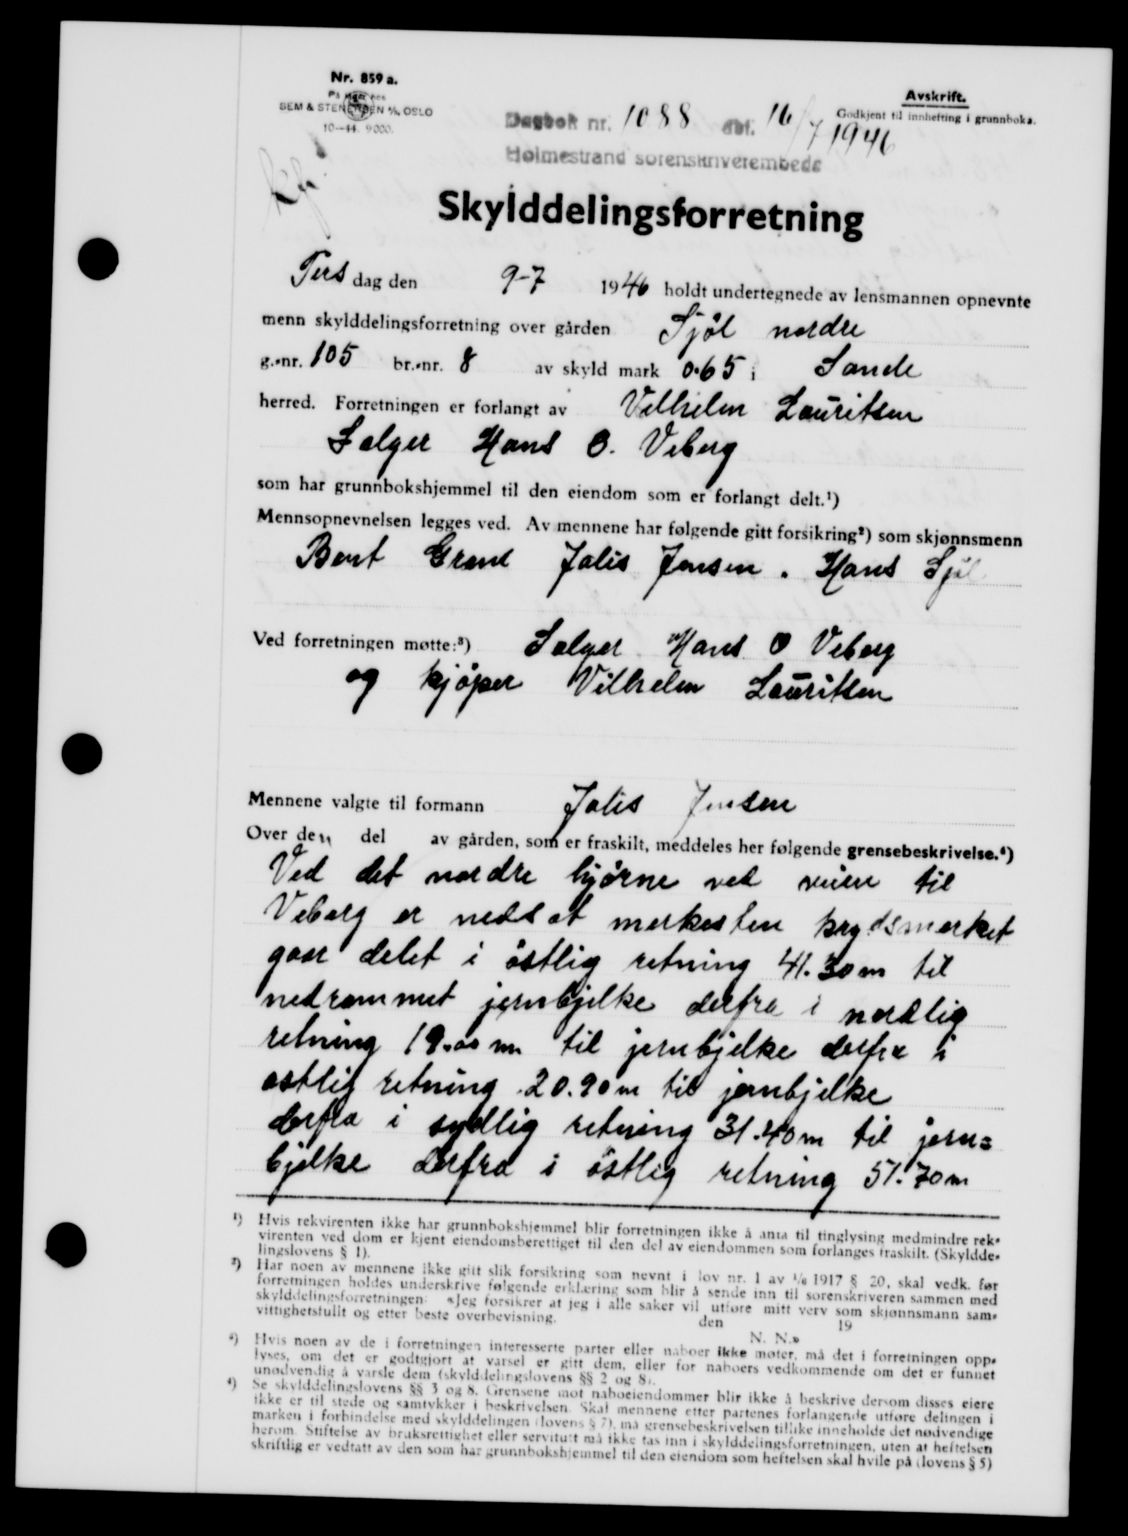 Nr. 859 a.
SEM & STENERSEN A/S, OSLO
10—44. 9000.
Avskrift.
Godkjent til innhefting i grunnboka.
Dagbok nr. 1088 dat. 16/7 1946
Holmestrand sorenskriverembede
Skylddelingsforretning
Tirsdag den 9-7 1946 holdt undertegnede av lensmannen opnevnte
menn skylddelingsforretning over gården Sjöl nordre
g.-nr. 105 br.-nr. 8 av skyld mark 0.65 i Sande
herred. Forretningen er forlangt av Vilhelm Lauritsen
Selger Hans O. Veberg
som har grunnbokshjemmel til den eiendom som er forlangt delt.¹)
Mennsopnevnelsen legges ved. Av mennene har følgende gitt forsikring²) som skjønnsmenn
Bent Jalis Jensen. Hans Sjöl
Ved forretningen møtte:³) Selger Hans O Veberg
og kjöper Vilhelm Lauritsen
Mennene valgte til formann Jalis Jensen
Over den del av gården, som er fraskilt, meddeles her følgende grensebeskrivelse.⁴)
Ved det nordre hjörne ved veien til
Veberg er nedsat merkesten krydsmerket
gaar delet i östlig retning 41.30m til
nedrammet jernbjelke derfra i nordlig
retning 19.00 m til jernbjelke derfra i
östlig retning 20.90m til jernbjelke
derfra i sydlig retning 31.40m til jern=
bjelke derfra i östlig retning 51.70m
¹) Hvis rekvirenten ikke har grunnbokshjemmel blir forretningen ikke å anta til tinglysing medmindre rek-
virenten ved dom er kjent eiendomsberettiget til den del av eiendommen som forlanges fraskilt. (Skyldde-
lingslovens § 1).
²) Har noen av mennene ikke gitt slik forsikring som nevnt i lov nr. 1 av 1/6 1917 § 20, skal vedk. før
forretningen holdes underskrive følgende erklæring som blir å sende inn til sorenskriveren sammen med
skylddelingsforretningen: «Jeg forsikrer at jeg i alle saker vil utføre mitt verv som skjønnsmann sam-
vittighetsfullt og etter beste overbevisning.
den 19
N. N.»
³) Hvis noen av de i forretningen interesserte parter eller naboer ikke møter, må det i forretningen opp-
lyses, om det er godtgjort at varsel er gitt dem, eller for naboers vedkommende om det er funnet
unødvendig å varsle dem (skylddelingslovens §§ 2 og 8).
⁴) Se skylddelingslovens §§ 3 og 8. Grensene mot naboeiendommer blir ikke å beskrive dersom disses eiere
ikke er til stede og samtykker i beskrivelsen. Skal mennene etter partenes forlangende utføre delingen i
marken i forbindelse med skylddelingen (lovens § 7), må grensebeskrivelsen tillike inneholde det nødvendige
herom. Stiftelse av bruksrettighet eller servitutt må ikke tas inn i skylddelingsforretningen, uten at heftelsen
skriftlig er vedtatt av den som har grunnbokshjemmel til den eiendom som heftelsen skal hvile på (lovens § 5)